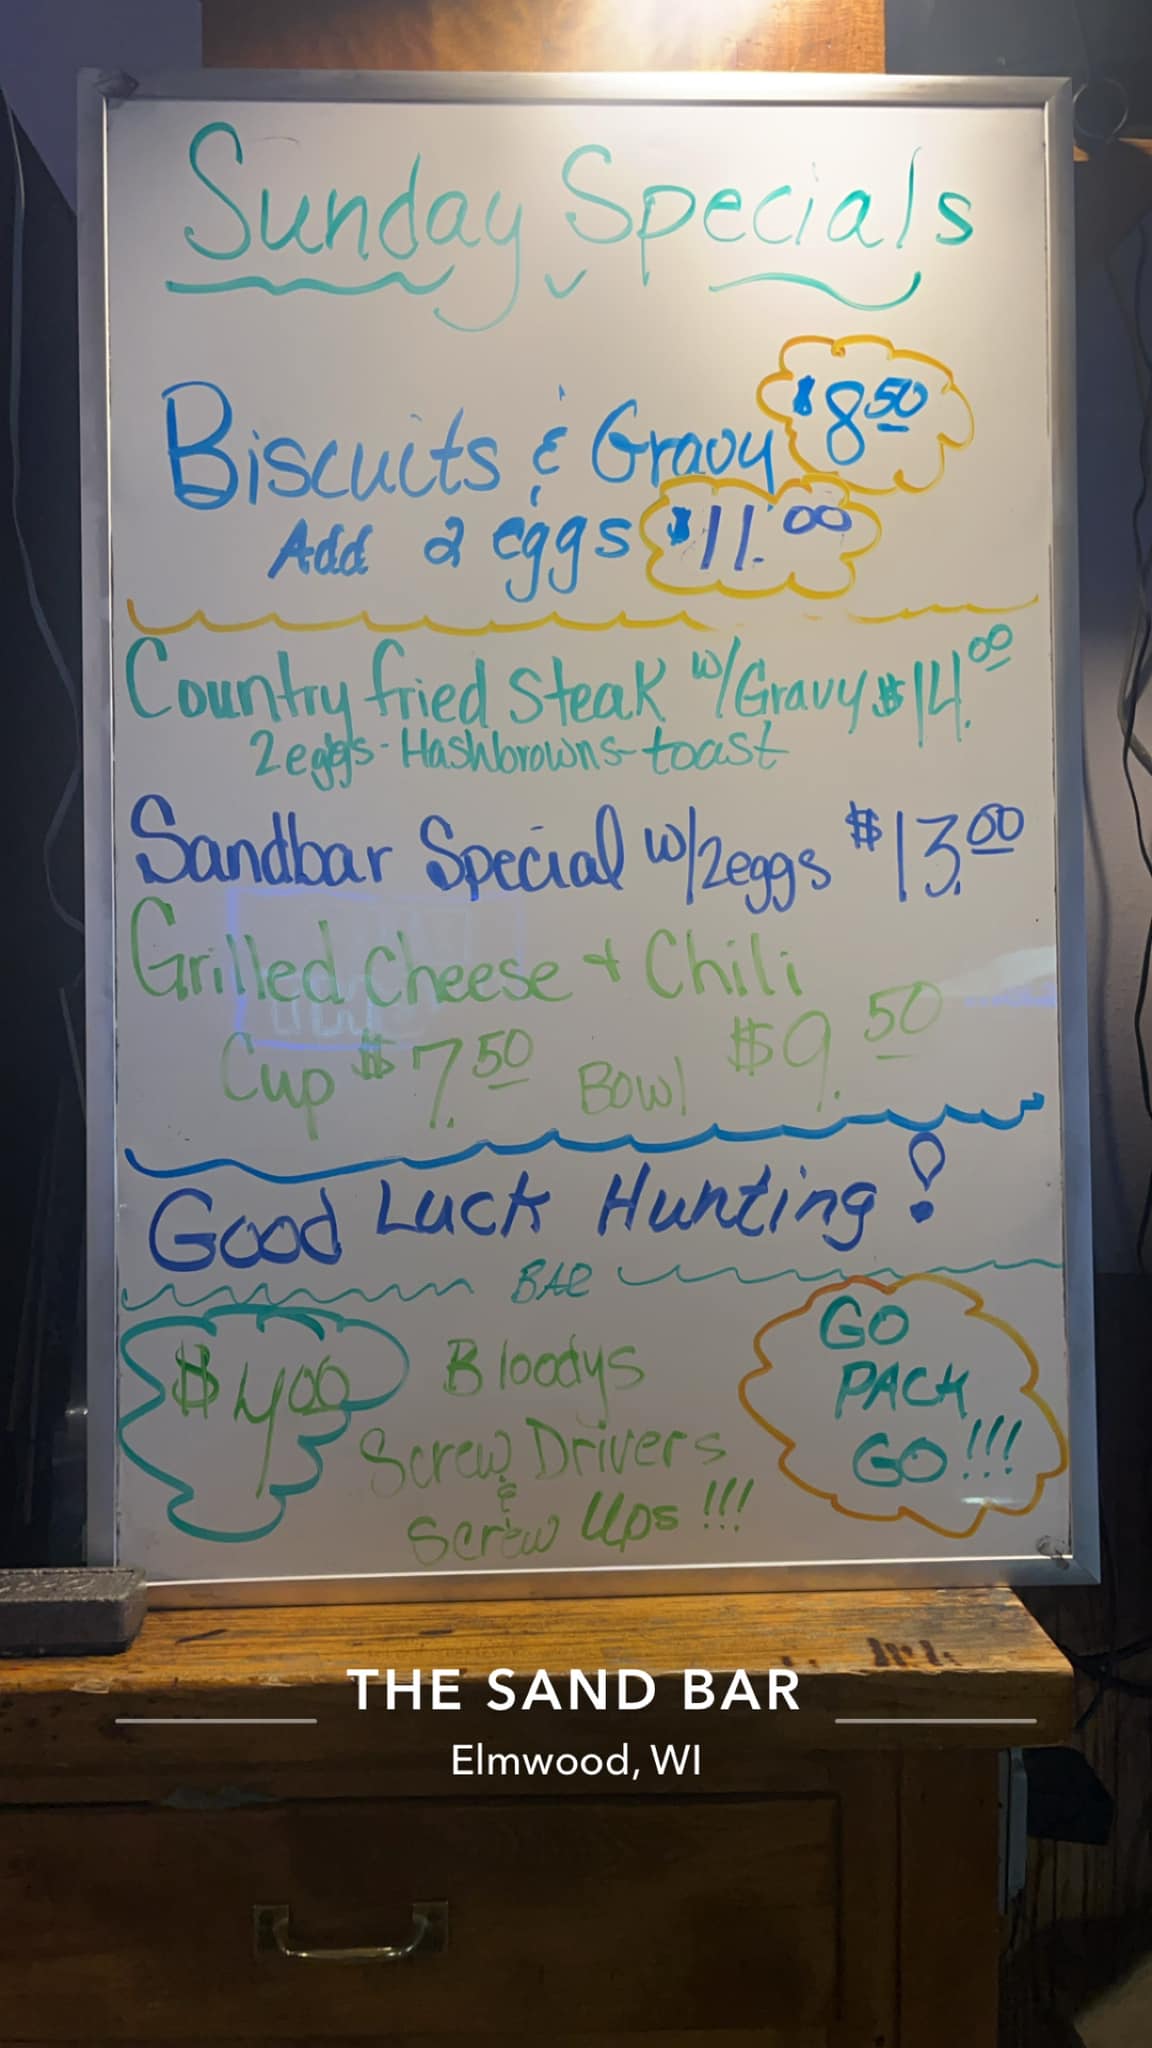 Sunday Specials
Biscuits & Gravy $8.50
Add 2 eggs $11.00
Country fried Steak w/Gravy $14.00
2 eggs - Hashbrowns - toast
Sandbar Special w/2eggs $13.00
Grilled Cheese + Chili
Cup $7.50 Bowl $9.50
Good Luck Hunting!
BAR
$4.00 Bloodys
Screw Drivers
&
Screw Ups !!!
GO
PACK
GO!!!
THE SAND BAR
Elmwood, WI